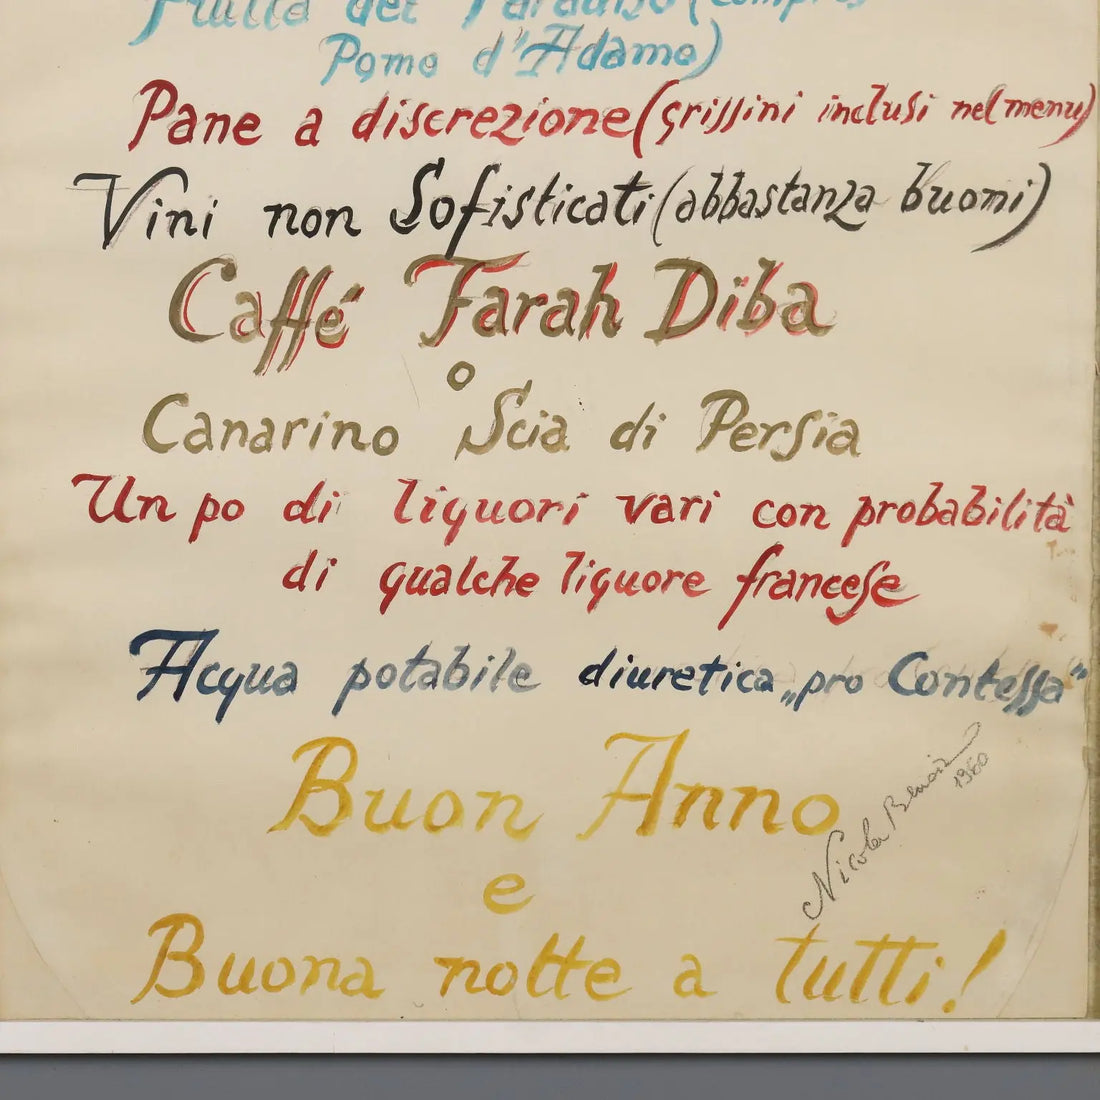 Frutta del Paradiso (compreso
Pomo d'Adamo)
Pane a discrezione (grissini inclusi nel menu)
Vini non Sofisticati (abbastanza buoni)
Caffé Farah Diba
o
Canarino Scia di Persia
Un po di liquori vari con probabilità
di qualche liquore francese
Acqua potabile diuretica „pro Contessa"
Buon Anno
e
Buona notte a tutti!
Nicola Benois
1960